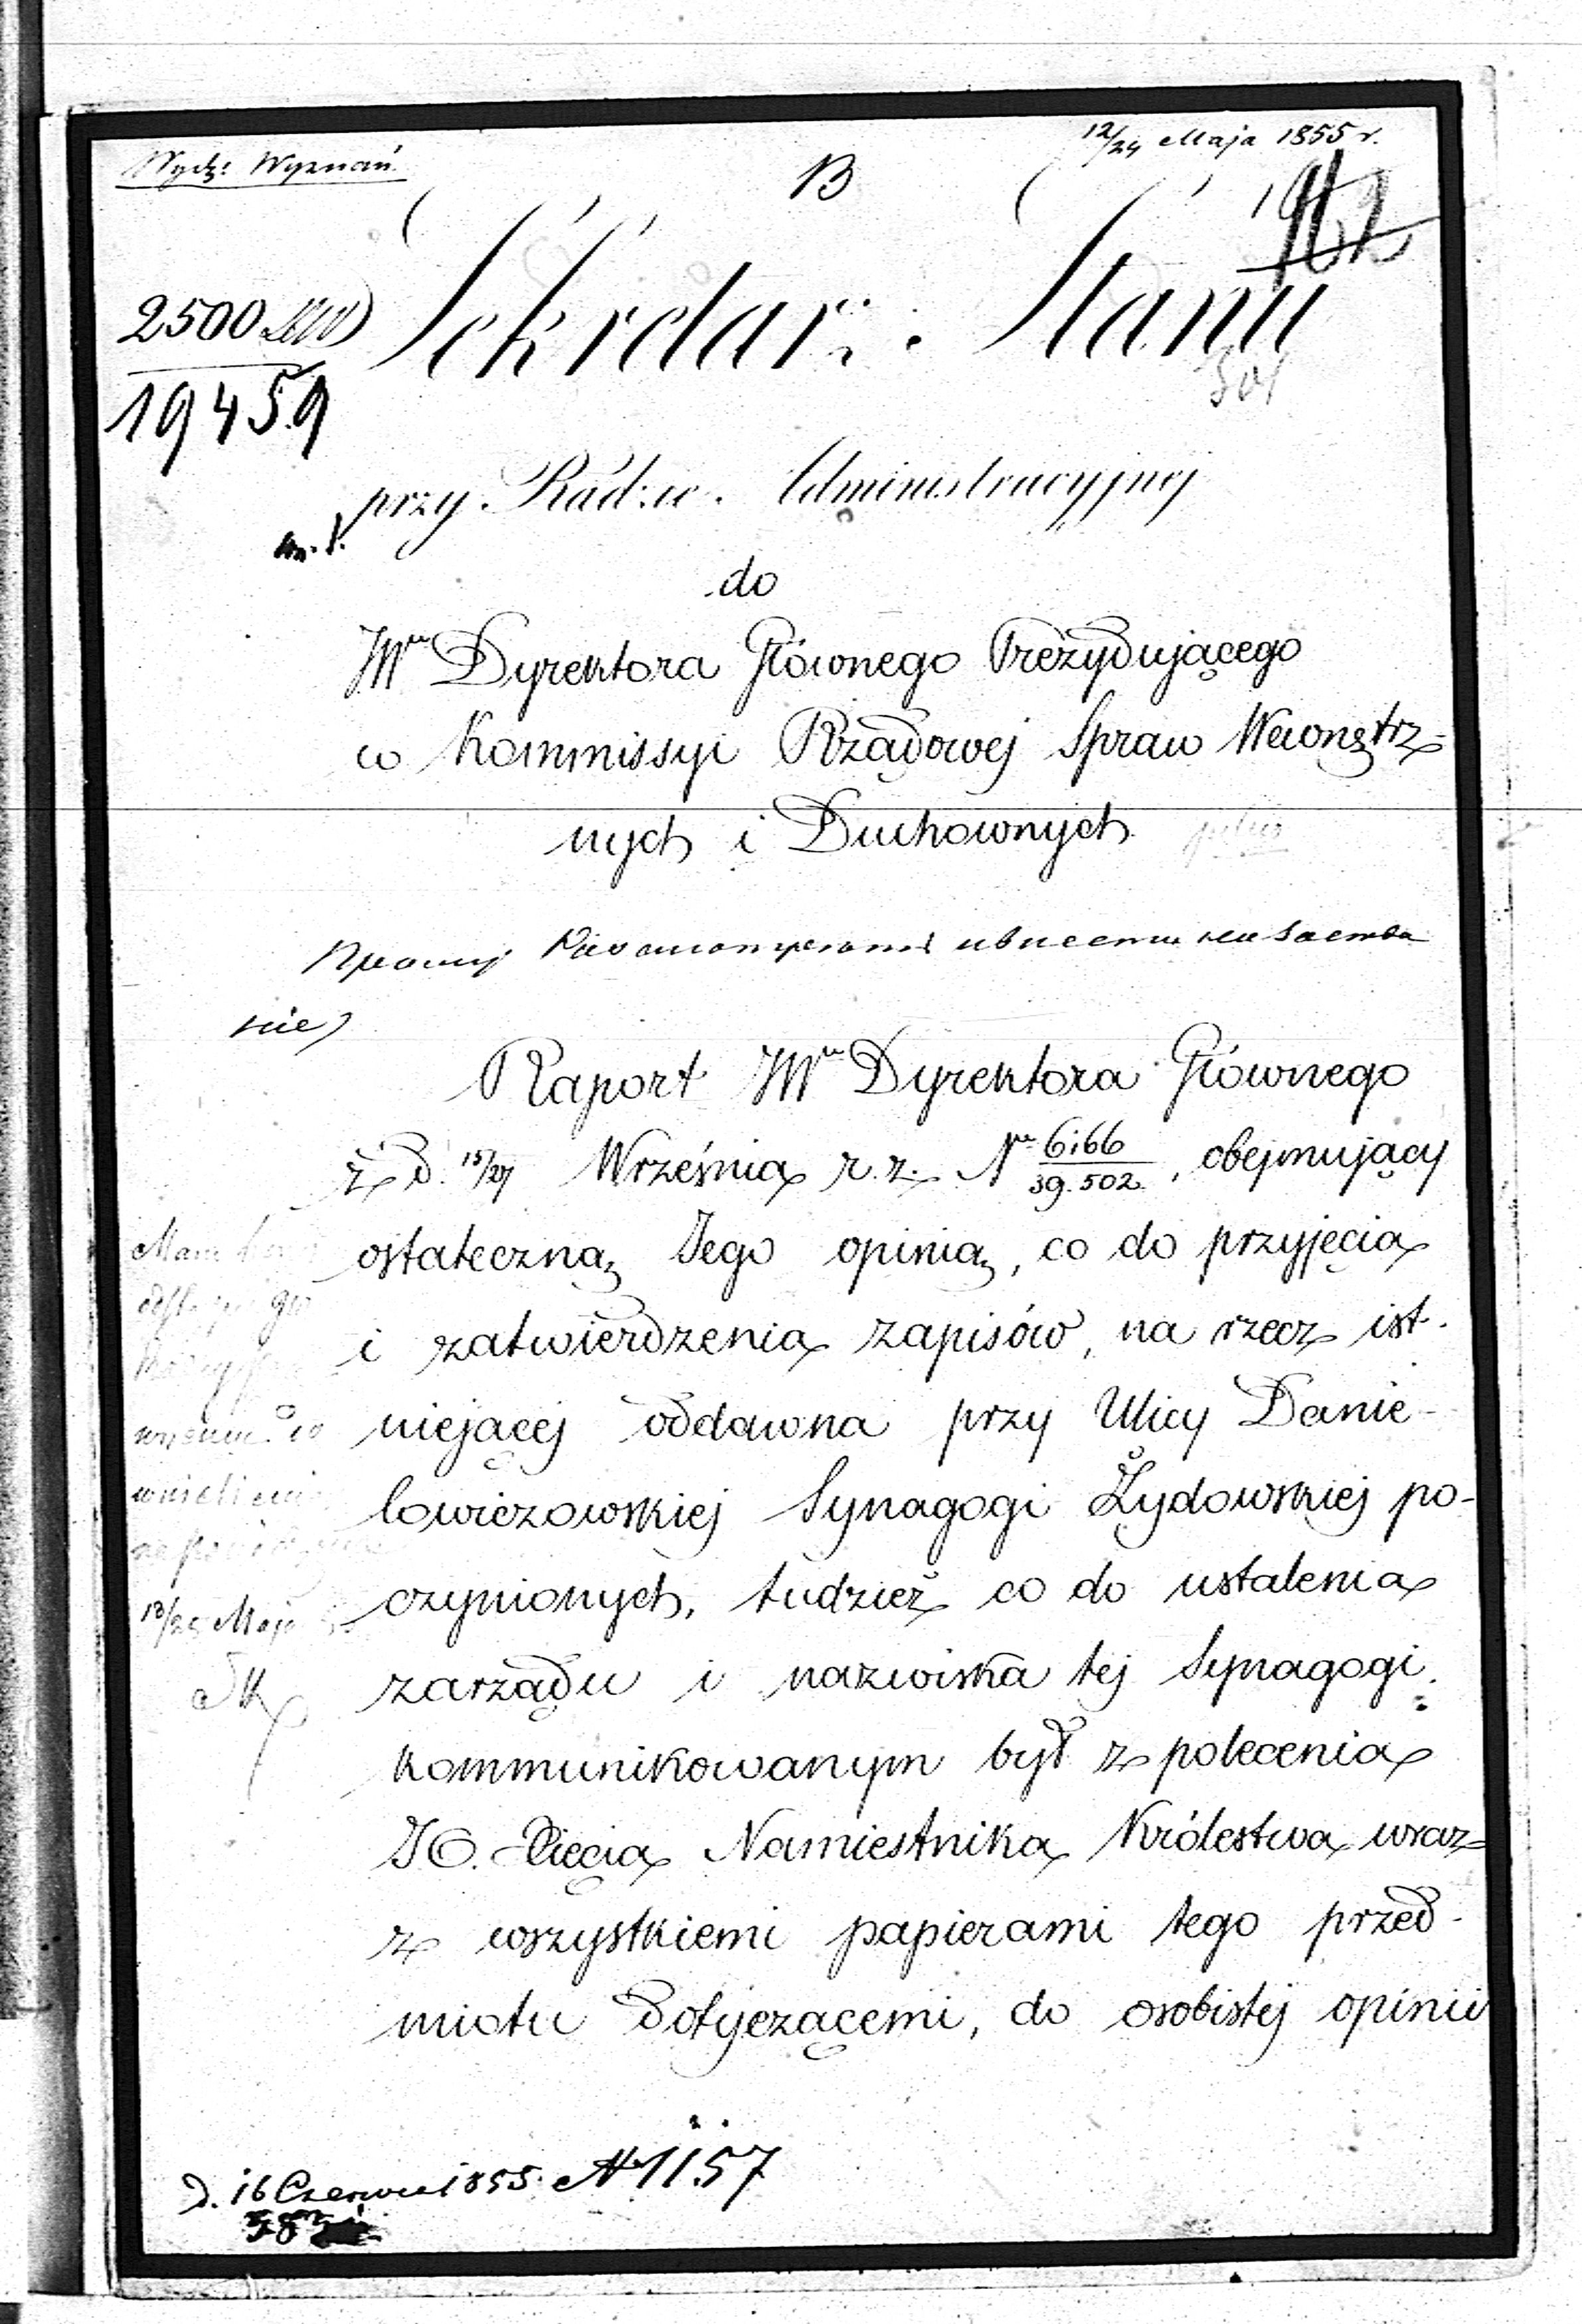 Wydz: Wyznań.
12/24 Maja 1855 r.
B
162
2500
19459
Sekretarz Stanu
501
przy Radzie Administracyjnej
do
JWo Dyrektora Głównego Prezydującego
w Kommissyi Rządowej Spraw Wewnętrz-
nych i Duchownych
Raport JWo Dyrektora Głównego
z d. 15/27 Września r. z. No 6166/39.502, obejmujący
ostateczną Jego opinią, co do przyjęcia
i zatwierdzenia zapisów, na rzecz ist-
niejącej oddawna przy Ulicy Danie-
lowiczowskiej Synagogi Żydowskiej po-
czynionych, tudzież co do ustalenia
zarządu i nazwiska tej Synagogi,
kommunikowanym był z polecenia
JO. Xięcia Namiestnika Królestwa wraz
z wszystkiemi papierami tego przed-
miotu dotyczącemi, do osobistej opinii
13/25 Maja
d. 16 Czerwca 1855. No 1157